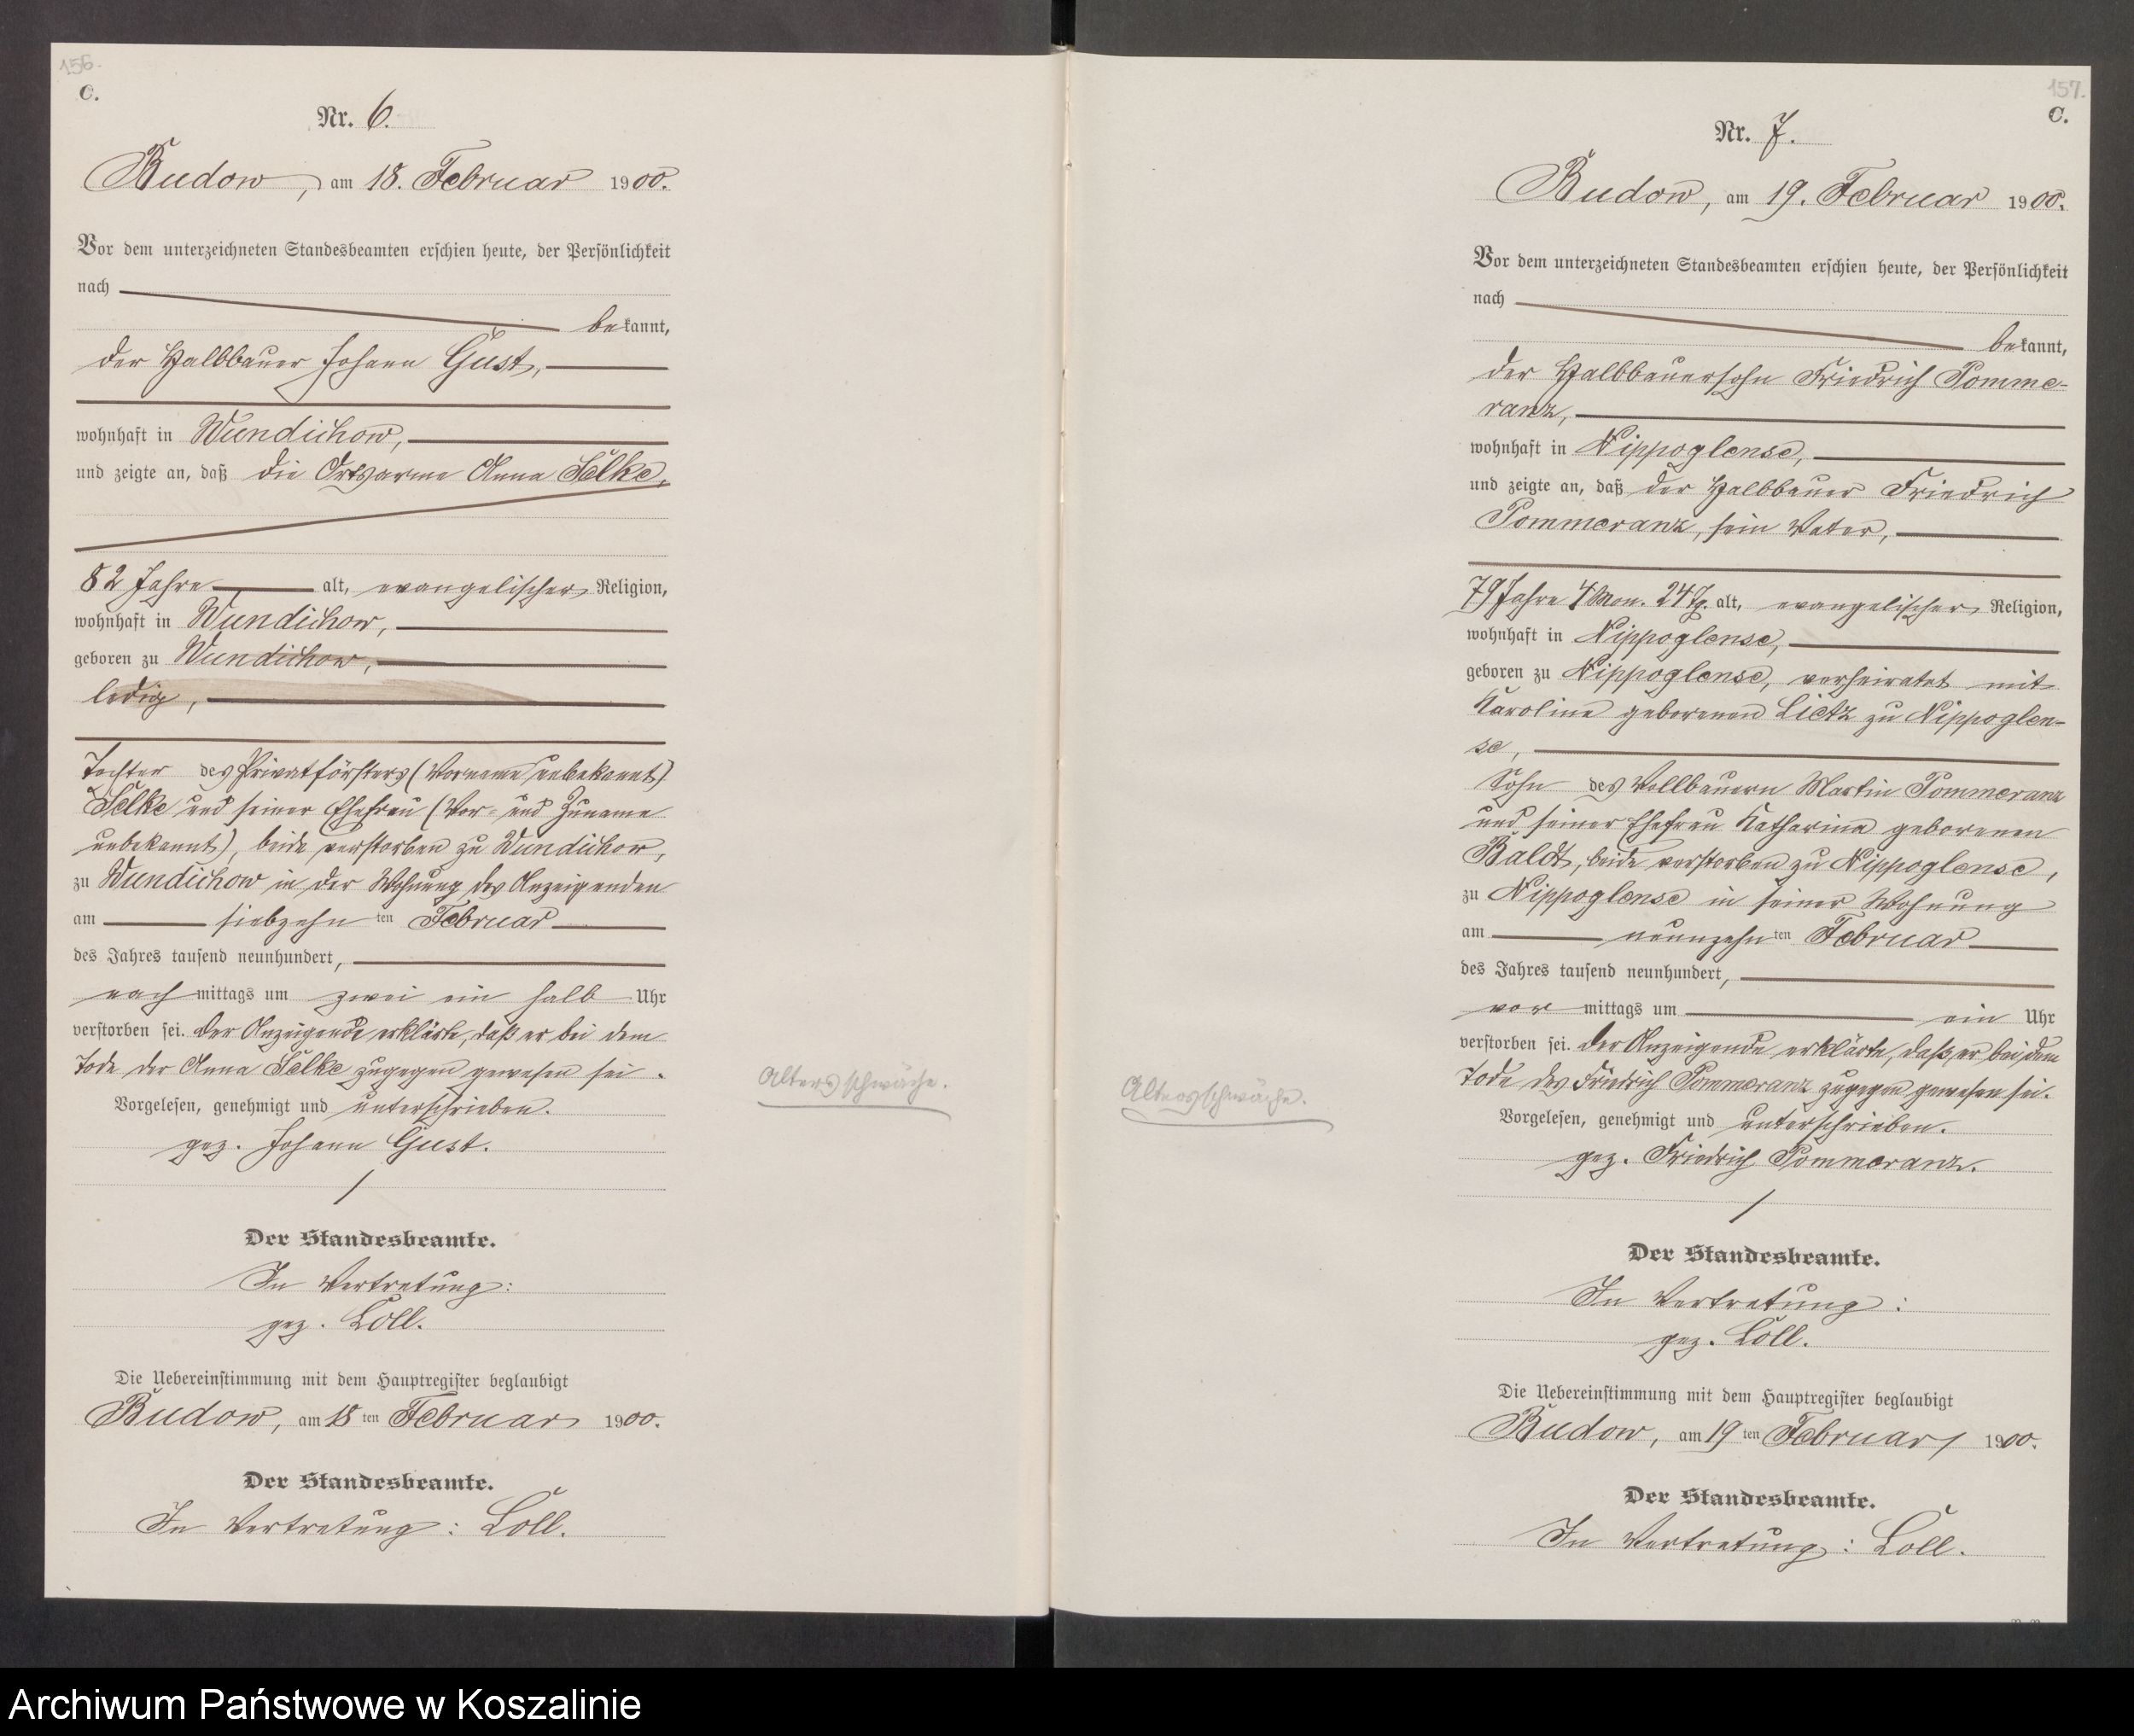 156.
C.
Nr. 6.
Budow, am 18. Februar 1900.
Vor dem unterzeichneten Standesbeamten erschien heute, der Persönlichkeit
nach
bekannt,
der Halbbauer Johann Gust,
wohnhaft in Wundichow,
und zeigte an, daß die Ortsarme Anna Selke,
82 Jahre alt, evangelischer Religion,
wohnhaft in Wundichow,
geboren zu Wundichow,
ledig,
Tochter des Privatförsters (Vorname unbekannt)
Selke und seiner Ehefrau (Vor- und Zuname
unbekannt), beide verstorben zu Wundichow,
zu Wundichow in der Wohnung des Anzeigenden
am siebzehnten Februar
des Jahres tausend neunhundert,
nachmittags um zwei ein halb Uhr
verstorben sei. Der Anzeigende erklärte, daß er bei dem
Tode der Anna Selke zugegen gewesen sei.
Vorgelesen, genehmigt und unterschrieben.
gez. Johann Gust.
Der Standesbeamte.
In Vertretung:
gez. Loll.
Die Uebereinstimmung mit dem Hauptregister beglaubigt
Budow, am 18ten Februar 1900.
Der Standesbeamte.
In Vertretung: Loll.
Altersschwäche.
157.
C.
Nr. 7.
Budow, am 19. Februar 1900.
Vor dem unterzeichneten Standesbeamten erschien heute, der Persönlichkeit
nach
bekannt,
der Halbbauersohn Friedrich Pomme-
ranz,
wohnhaft in Nippoglense,
und zeigte an, daß der Halbbauer Friedrich
Pommeranz, sein Vater,
79 Jahre 4 Mon. 24 Tg. alt, evangelischer Religion,
wohnhaft in Nippoglense,
geboren zu Nippoglense, verheiratet mit
Karoline geborenen Lietz zu Nippoglen-
se,
Sohn des Vollbauern Martin Pommeranz
und seiner Ehefrau Katharina geborenen
Baldt, beide verstorben zu Nippoglense,
zu Nippoglense in seiner Wohnung
am neunzehnten Februar
des Jahres tausend neunhundert,
vormittags um ein Uhr
verstorben sei. Der Anzeigende erklärte, daß er bei dem
Tode des Friedrich Pommeranz zugegen gewesen sei.
Vorgelesen, genehmigt und unterschrieben.
gez. Friedrich Pommeranz.
Der Standesbeamte.
In Vertretung:
gez. Loll.
Die Uebereinstimmung mit dem Hauptregister beglaubigt
Budow, am 19ten Februar 1900.
Der Standesbeamte.
In Vertretung: Loll.
Altersschwäche.
Archiwum Państwowe w Koszalinie